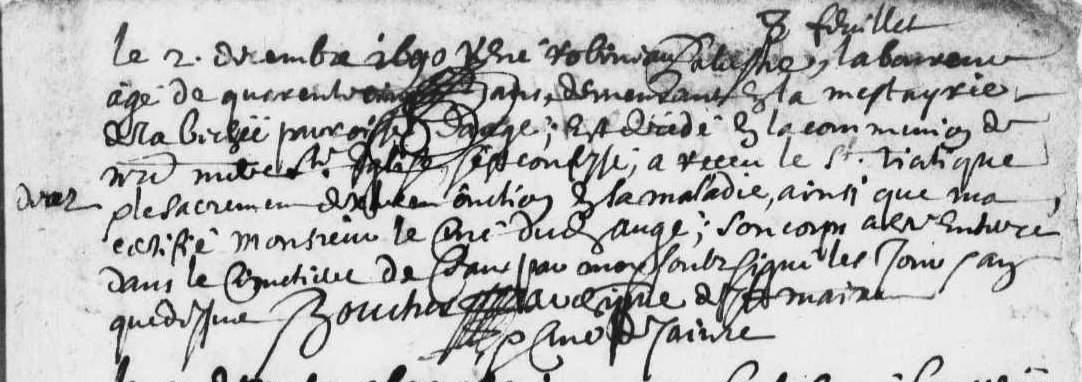 3 feuillet
le 2. decembre 1690 René robineau laboureur
âgé de quarente cinq ans, demeurant en la mestayrie
de la bichée parroisse dange; est decedé en la communion de
nre mere ste. Eglise, sest confessé, a receu le st. viatique
deces
& le sacrement dextreme onction en sa maladie, ainsi que ma
certifié monsieur le curé du dange; son corps a esté enterré
dans le cimetiere de par moy soubsigné les jour & an
que dessus Boucher
curé de